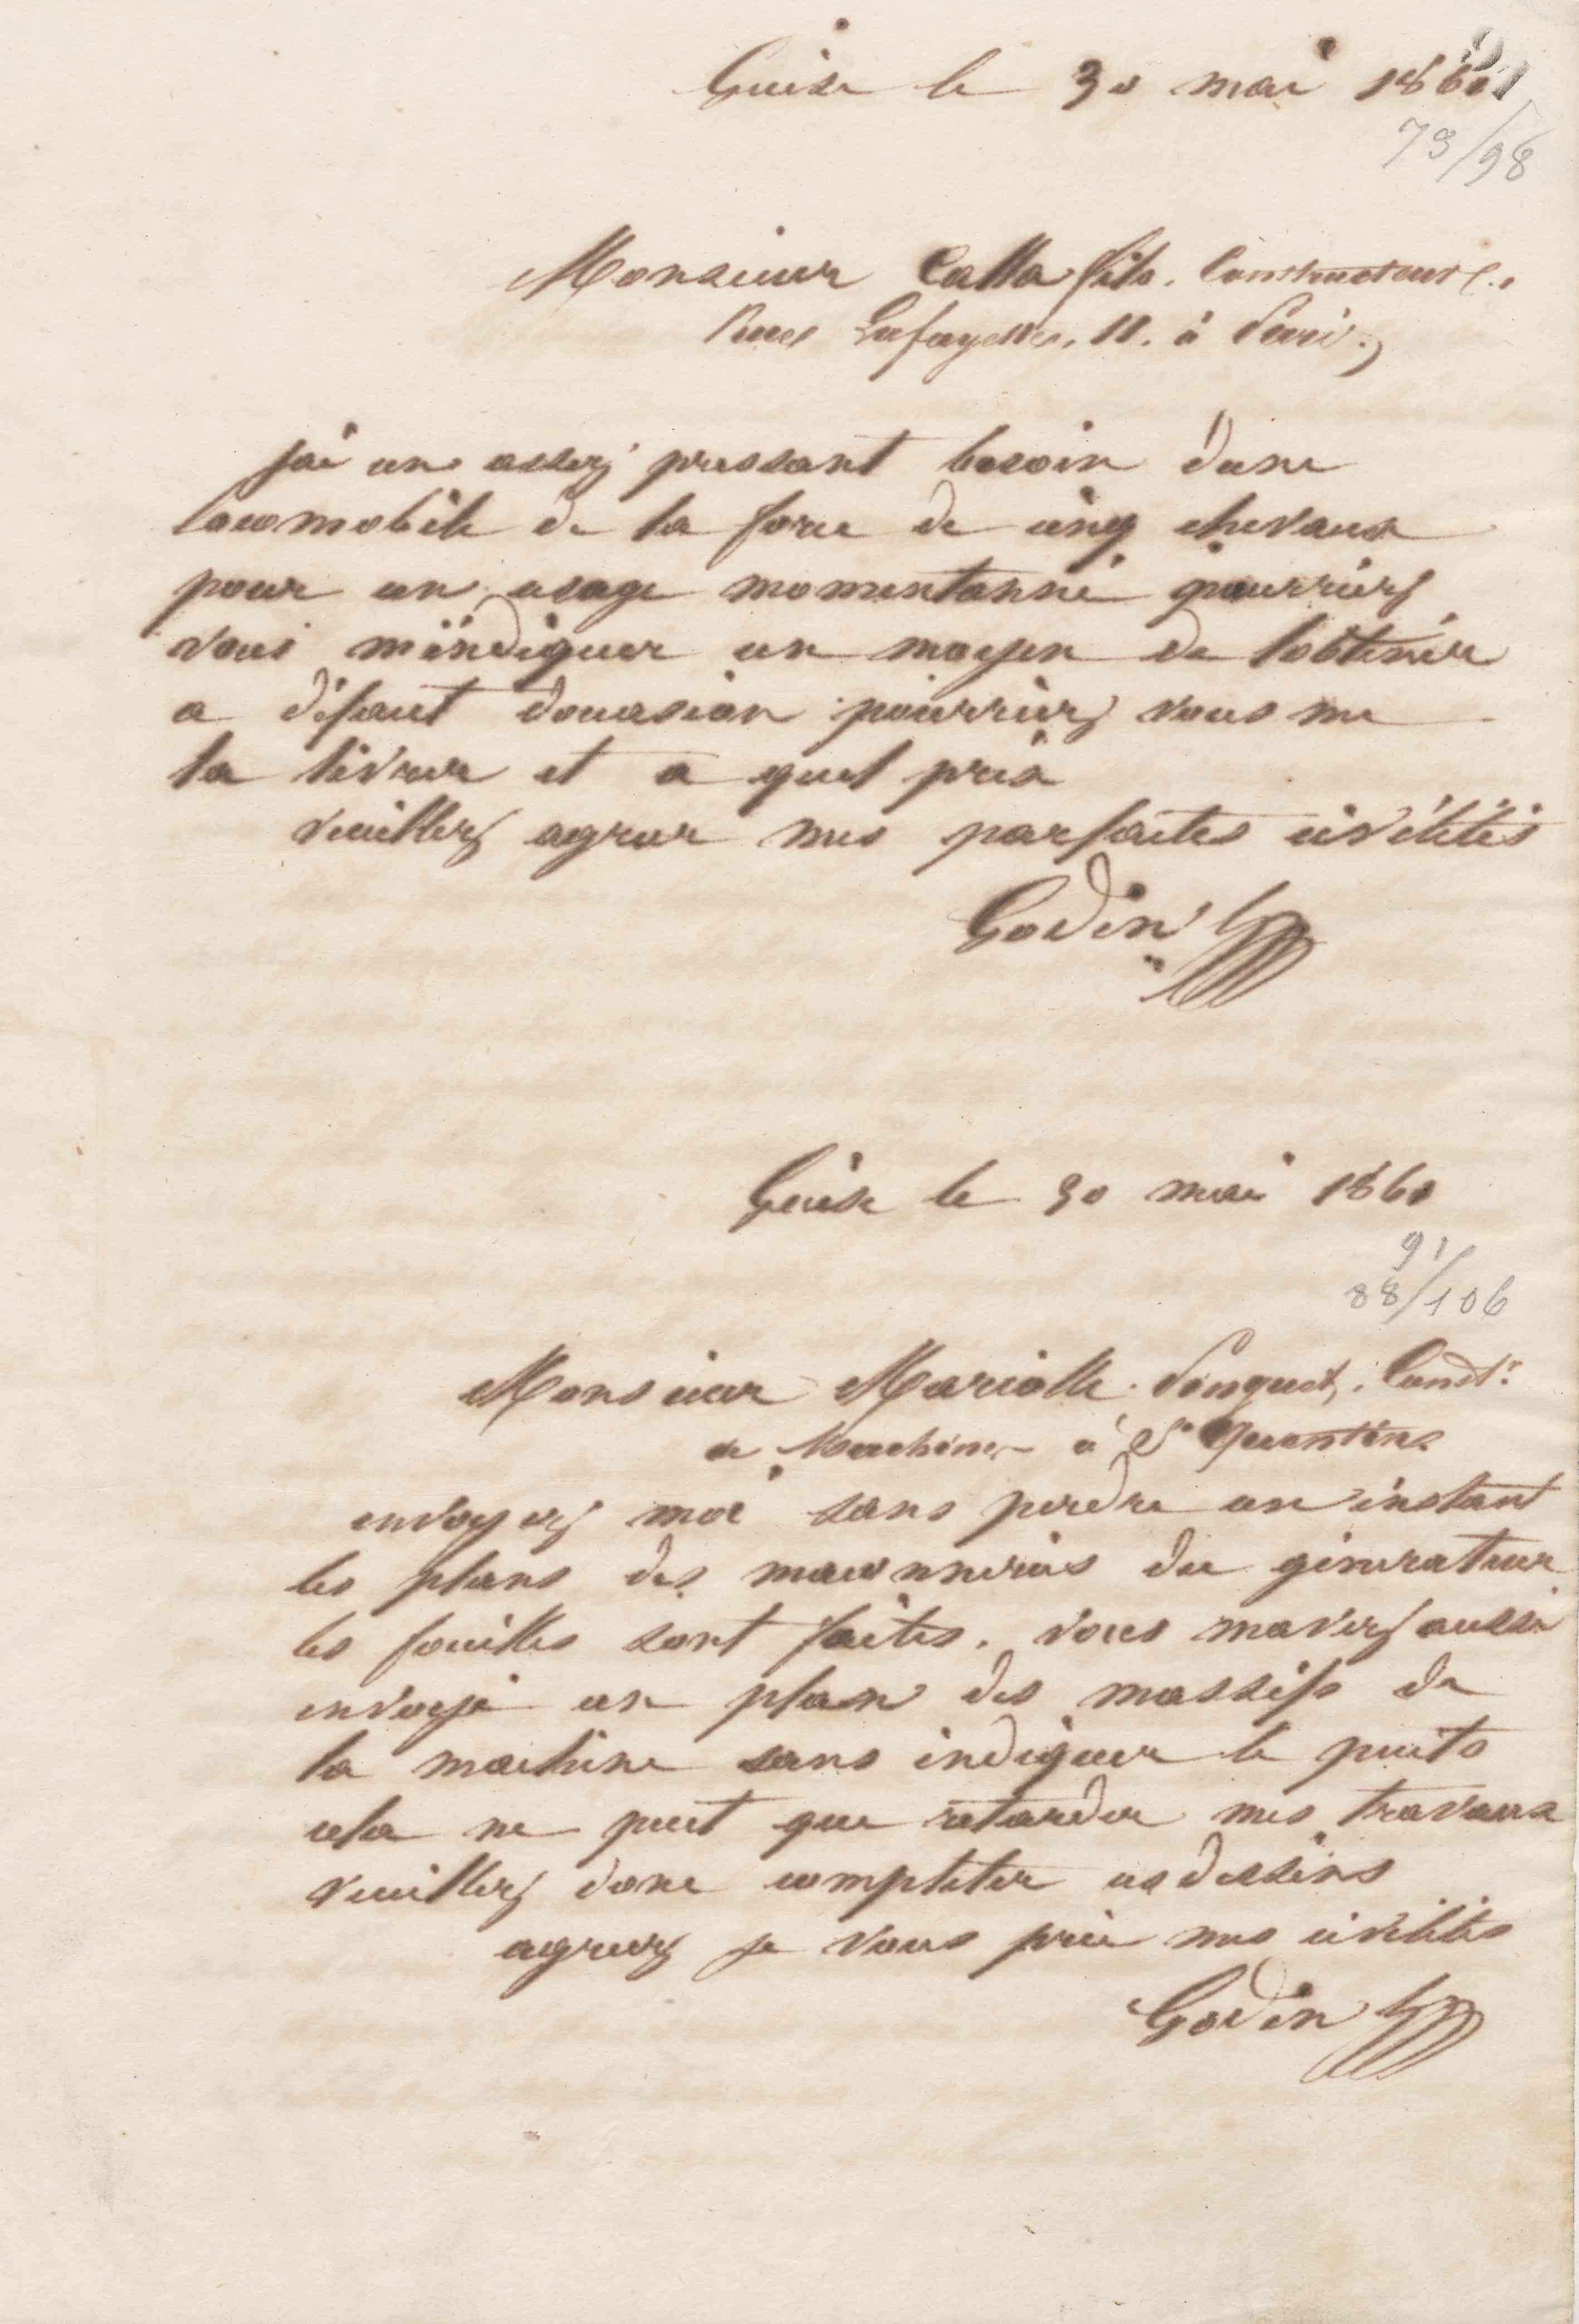 Guise le 30 mai 1860
79/98
Monsieur Calla fils. Constructeur
Rue Lafayette, 11. à Paris.
jai un assez pressant besoin dune
locomobile de la force de cinq chevaux
pour un usage momentanné pourriez
vous mindiquer un moyen de lobtenir
a défaut doccasion pourriez vous me
la livrer et a quel prix
veuillez agreer mes parfaites civilités
Godin
Guise le 30 mai 1860
91
88/106
Monsieur Mariolle Pinguet, Const.r
de Machines à St Quentin
envoyez moi sans perdre un instant
les plans des maconneries du générateur
les fouilles sont faites. vous mavez aussi
envoyé un plan des massifs de
la machine sans indiquer le puits
cela ne peut que retarder mes travaux
veuillez donc completer ces dessins
agreez je vous prie mes civilités
Godin